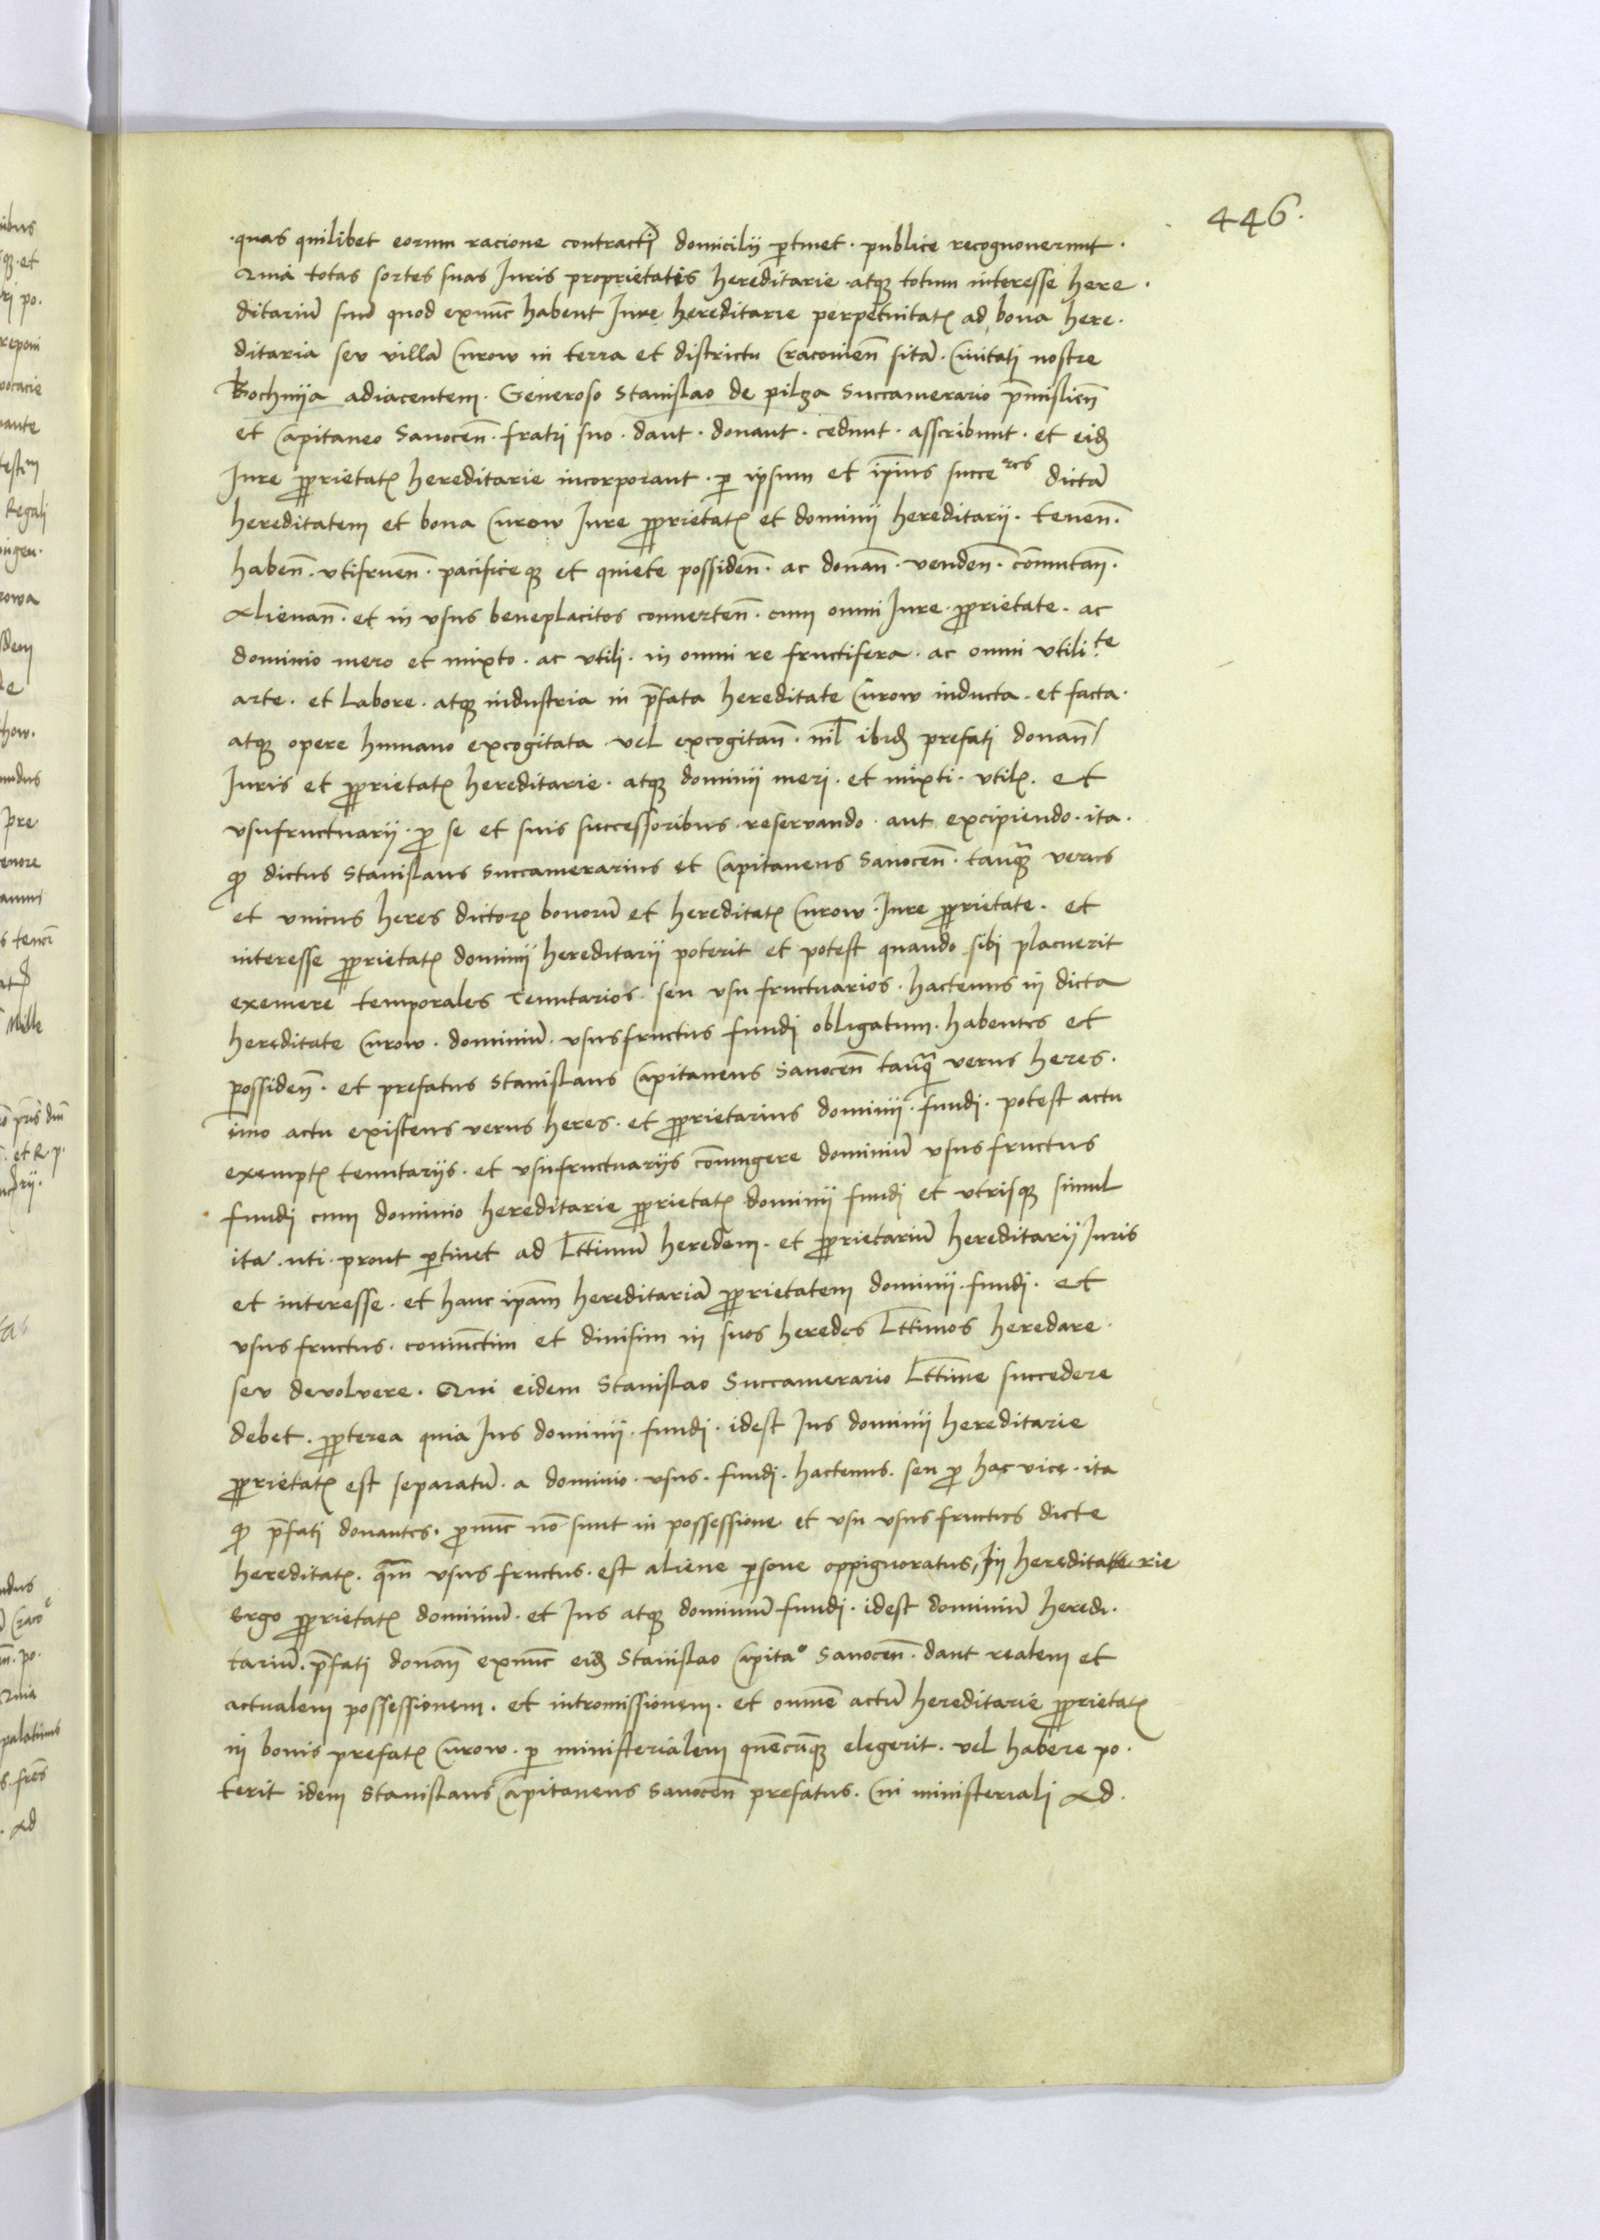 446.
quas quilibet eorum racione contracti domicilij ptinet. publice recognouerunt.
Quia totas sortes suas Iuris proprietatis hereditarie atqꝫ totum interesse here.
ditariū suū quod exnūc habent Iure hereditarie perpetuitatꝭ ad bona here.
ditaria seu villā Curow in terra et districtu Cracouien̄ sitā. Ciuitati nostre
Bochnÿa adiacentem. Generoso Stanislao de pilꝫa Succamerario p̄mislien̄
et Capitaneo Sanocen̄. fratri suo. dant. donant. cedunt. asscribunt. et eid̄
Iure ꝓprietatꝭ hereditarie incorporant. ꝑ ipsum et ip̄ius succe res dictā
hereditatem et bona Curow Iure ꝓprietatꝭ et dominij hereditarij. tenen̄.
haben̄. vtifruen̄. pacifice qꝫ et quiete possiden̄. ac donan̄. venden̄. com̄utan̄.
Alienan̄. et in vsus beneplacitos conuerten̄. cum omni Iure. ꝓprietate. ac
dominio mero et mixto. ac vtili. in omni re fructifera. ac omni vtili te
arte. et Labore. atqꝫ industria in p̄fata hereditate Curow inducta. et facta.
atqꝫ opere humano excogitata vel excogitan̄. nil̄ ibid̄ prefati donan̄
Iuris et ꝓprietatꝭ hereditarie. atqꝫ dominij meri. et mixti. vtilꝭ. et
vsufructuarij. ꝓ se et suis successoribus. reseruando. aut excipiendo. ita.
ꝙ dictus Stanislaus Succamerarius et Capitaneus Sanocen̄. tanqꝫ verus
et vnicus heres dictorꝝ bonorū et hereditatꝭ Curow. Iure ꝓprietate. et
interesse ꝓprietatꝭ dominij hereditarij poterit et potest quando sibi placuerit
exemere temporales tenutarios. seu vsu fructuarios. hactenus in dicta
hereditate Curow. dominiū. vsusfructus fundi obligatum. habentes et
possiden̄. et prefatus Stanislaus Capitaneus Sanocen̄ tanqꝫ verus heres.
imo actu existens verus heres. et ꝓprietarius dominij. fundi. potest actu
exemptꝭ tenutarijs. et vsufructuarijs coniungere dominiū vsusfructus
fundi cum dominio hereditarie ꝓprietatꝭ dominij fundi et vtrisqꝫ simul
ita. uti. prout ptinet ad Lt̄timū heredem. et ꝓprietariū hereditarij Iuris
et interesse. et hanc ip̄am hereditariā ꝓprietatem dominij. fundi. et
vsus fructus. coniūctim et diuisim in suos heredes Lt̄timos heredare.
seu devolvere. Qui eidem Stanislao Succamerario Lt̄time succedere
debet. ꝓpterea quia Ius dominij. fundi. idest Ius dominij hereditarie
ꝓprietatꝭ est separatū. a dominio. vsus. fundi. hactenus. seu ꝓ hac vice. ita
ꝙ p̄fati donantes. ꝓnūc nō sunt in possessione et vsu vsus fructus dicte
hereditatꝭ. qm̄ vsus fructus. est aliene ꝑsone oppignoratus, hereditarie
Ergo ꝓprietatꝭ dominiū. et Ius atqꝫ dominiū fundi. idest dominiū heredi.
tariū. p̄fati donan̄ exnūc eid̄ Stanislao Capitao Sanocen̄. dant realem et
actualem possessionem. et intromissionem. et omnē actū hereditarie ꝓprietatꝭ
in bonis prefatꝭ Curow. ꝑ ministerialem quēcūqꝫ elegerit. vel habere po.
terit idem Stanislaus Capitaneus Sanocen̄ prefatus. Cui ministeriali Ad.